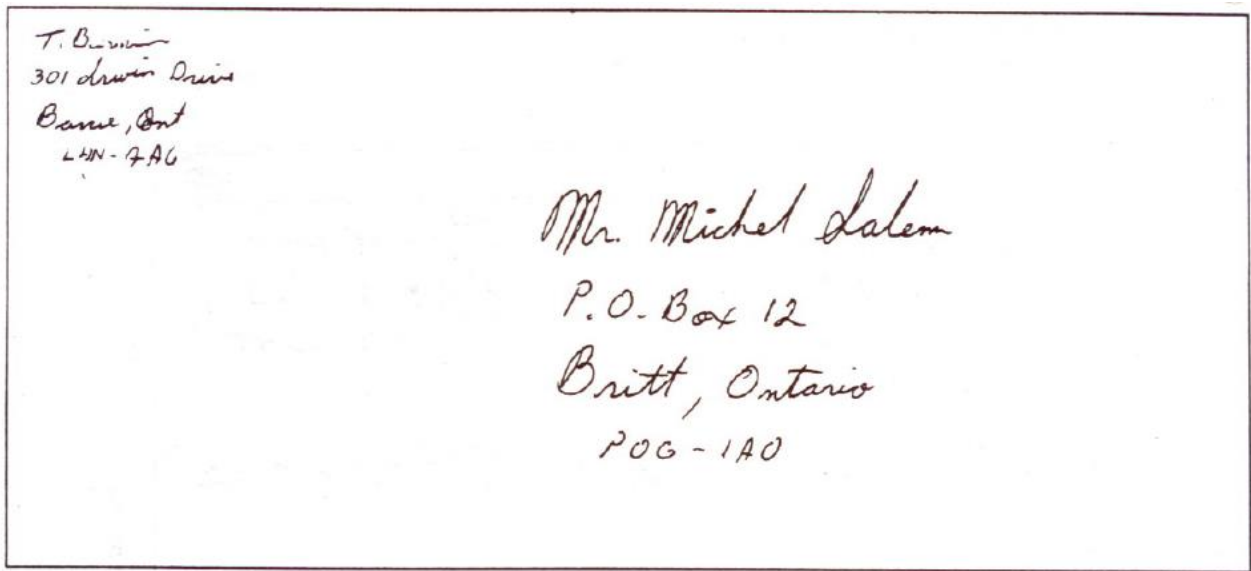 T.
301 Irwin Drive
Barrie, Ont
L4N-7A6
Mr. Michel Salem
P.O. Box 12
Britt, Ontario
P0G-1A0